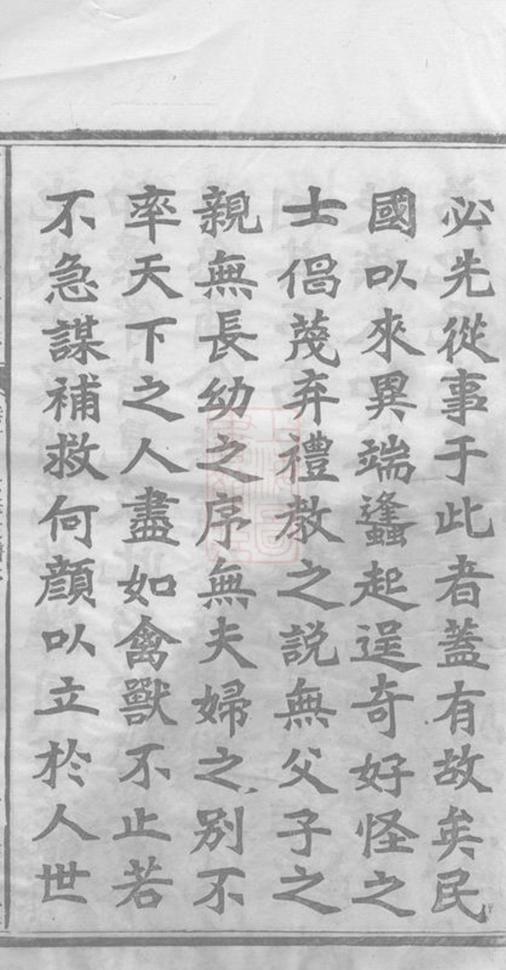 必先從事于此者蓋有故矣民
國以來異端蠭起逞奇好怪之
士倡蔑弃禮教之説無父子之
親無長幼之序無夫婦之别不
率天下之人盡如禽獸不止若
不急謀補救何顔以立於人世